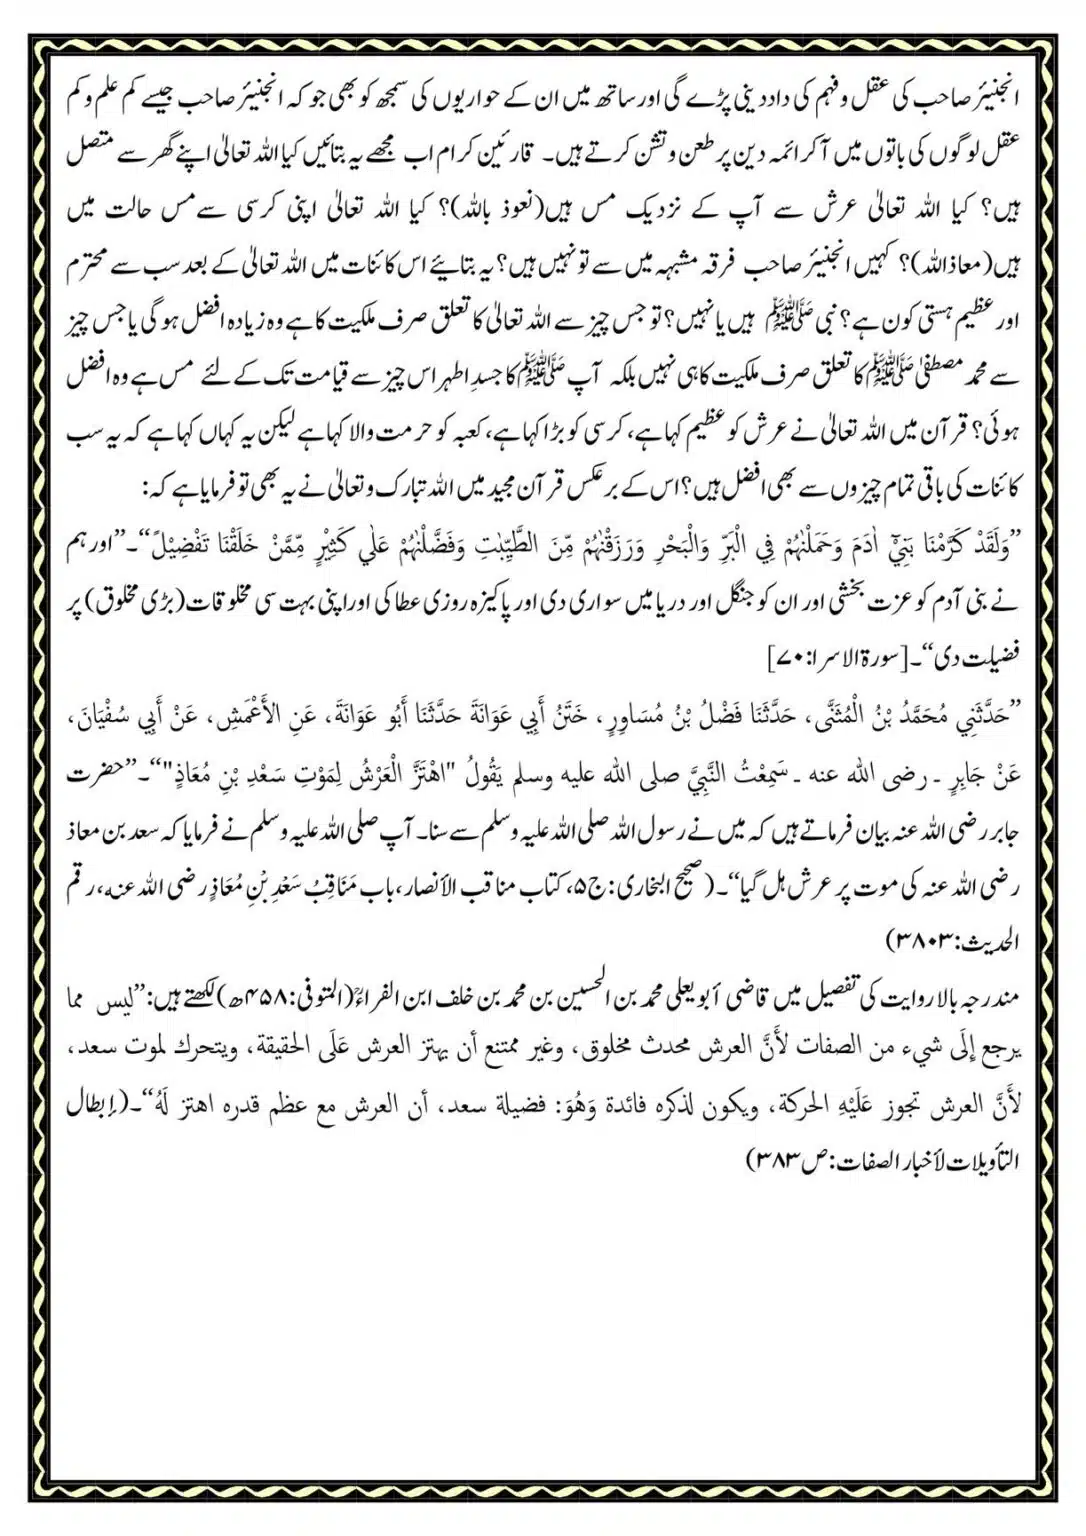 انجنیئر صاحب کی عقل و فہم کی داد دینی پڑے گی اور ساتھ میں ان کے حواریوں کی سمجھ کو بھی جو کہ انجنیئر صاحب جیسے کم علم و کم
عقل لوگوں کی باتوں میں آکر ائمہ دین پر طعن و تشن کرتے ہیں۔ قارئین کرام اب مجھے یہ بتائیں کیا اللہ تعالیٰ اپنے گھر سے متصل
ہیں؟ کیا اللہ تعالیٰ عرش سے آپ کے نزدیک مس ہیں (نعوذ باللہ)؟ کیا اللہ تعالیٰ اپنی کرسی سے مس حالت میں
ہیں (معاذ اللہ)؟ کہیں انجنیئر صاحب فرقہ مشبہہ میں سے تو نہیں ہیں؟ یہ بتایئے اس کائنات میں اللہ تعالیٰ کے بعد سب سے محترم
اور عظیم ہستی کون ہے؟ نبی ﷺ ہیں یا نہیں؟ تو جس چیز سے اللہ تعالیٰ کا تعلق صرف ملکیت کا ہے وہ زیادہ افضل ہو گی یا جس چیز
سے محمد مصطفیٰ ﷺ کا تعلق صرف ملکیت کا ہی نہیں بلکہ آپ ﷺ کا جسدِ اطہر اس چیز سے قیامت تک کے لئے مس ہے وہ افضل
ہوئی؟ قرآن میں اللہ تعالیٰ نے عرش کو عظیم کہا ہے، کرسی کو بڑا کہا ہے، کعبہ کو حرمت والا کہا ہے لیکن یہ کہاں کہا ہے کہ یہ سب
کائنات کی باقی تمام چیزوں سے بھی افضل ہیں؟ اس کے برعکس قرآن مجید میں اللہ تبارک و تعالیٰ نے یہ بھی تو فرمایا ہے کہ:
”وَلَقَدْ كَرَّمْنَا بَنِيْٓ اٰدَمَ وَحَمَلْنٰهُمْ فِي الْبَرِّ وَالْبَحْرِ وَرَزَقْنٰهُمْ مِّنَ الطَّيِّبٰتِ وَفَضَّلْنٰهُمْ عَلٰي كَثِيْرٍ مِّمَّنْ خَلَقْنَا تَفْضِيْلً“۔ ”اور ہم
نے بنی آدم کو عزت بخشی اور ان کو جنگل اور دریا میں سواری دی اور پاکیزہ روزی عطا کی اور اپنی بہت سی مخلوقات (بڑی مخلوق) پر
فضیلت دی“۔ [سورۃ الاسرا: ۷۰]
”حَدَّثَنِي مُحَمَّدُ بْنُ الْمُثَنَّى، حَدَّثَنَا فَضْلُ بْنُ مُسَاوِرٍ، خَتَنُ أَبِي عَوَانَةَ حَدَّثَنَا أَبُو عَوَانَةَ، عَنِ الأَعْمَشِ، عَنْ أَبِي سُفْيَانَ،
عَنْ جَابِرٍ ـ رضى الله عنه ـ سَمِعْتُ النَّبِيَّ صلى الله عليه وسلم يَقُولُ "اهْتَزَّ الْعَرْشُ لِمَوْتِ سَعْدِ بْنِ مُعَاذٍ"“۔ ”حضرت
جابر رضی اللہ عنہ بیان فرماتے ہیں کہ میں نے رسول اللہ صلی اللہ علیہ وسلم سے سنا۔ آپ صلی اللہ علیہ وسلم نے فرمایا کہ سعد بن معاذ
رضی اللہ عنہ کی موت پر عرش ہل گیا“۔ (صحیح البخاری: ج۵، کتاب مناقب الأنصار، باب مَنَاقِبُ سَعْدِ بْنِ مُعَاذٍ رضی اللہ عنہ، رقم
الحدیث: ۳۸۰۳)
مندرجہ بالا روایت کی تفصیل میں قاضی أبو یعلی محمد بن الحسین بن محمد بن خلف ابن الفراءؒ (المتوفی: ۴۵۸ھ) لکھتے ہیں: ”ليس مما
يرجع إِلَى شيء من الصفات لأَنَّ العرش محدث مخلوق، وغير ممتنع أن يهتز العرش عَلَى الحقيقة، ويتحرك لموت سعد،
لأَنَّ العرش تجوز عَلَيْهِ الحركة، ويكون لذكره فائدة وَهُوَ: فضيلة سعد، أن العرش مع عظم قدره اهتز لَهُ“۔ (إبطال
التأويلات لأخبار الصفات: ص۳۸۳)